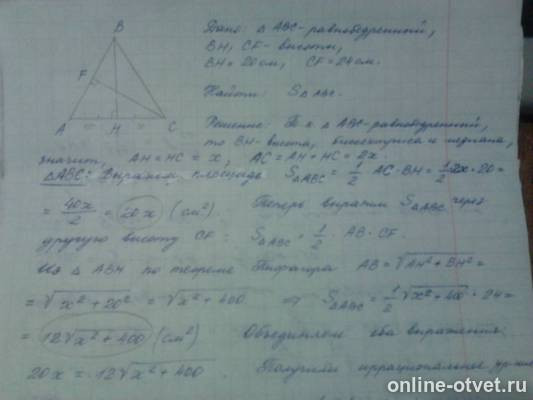 B
F
A H C
Дано: △ ABC - равнобедренный,
BH, CF - высоты,
BH = 20 см, CF = 24 см.
Найти: S△ABC.
Решение: Т.к. △ ABC - равнобедренный,
то BH - высота, биссектриса и медиана,
значит, AH = HC = x, AC = AH + HC = 2x.
△ABC: Выразим площадь S△ABC = 1/2 · AC · BH = 1/2 · 2x · 20 =
= 40x/2 = 20x (см²) Теперь выразим S△ABC через
другую высоту CF: S△ABC = 1/2 · AB · CF.
Из △ ABH по теореме Пифагора AB = √(AH² + BH²) =
= √(x² + 20²) = √(x² + 400) ⇒ S△ABC = 1/2 √(x² + 400) · 24 =
= 12√(x² + 400) (см²) Объединяем оба выражения:
20x = 12√(x² + 400). Получили иррациональное ур-ние
online-otvet.ru